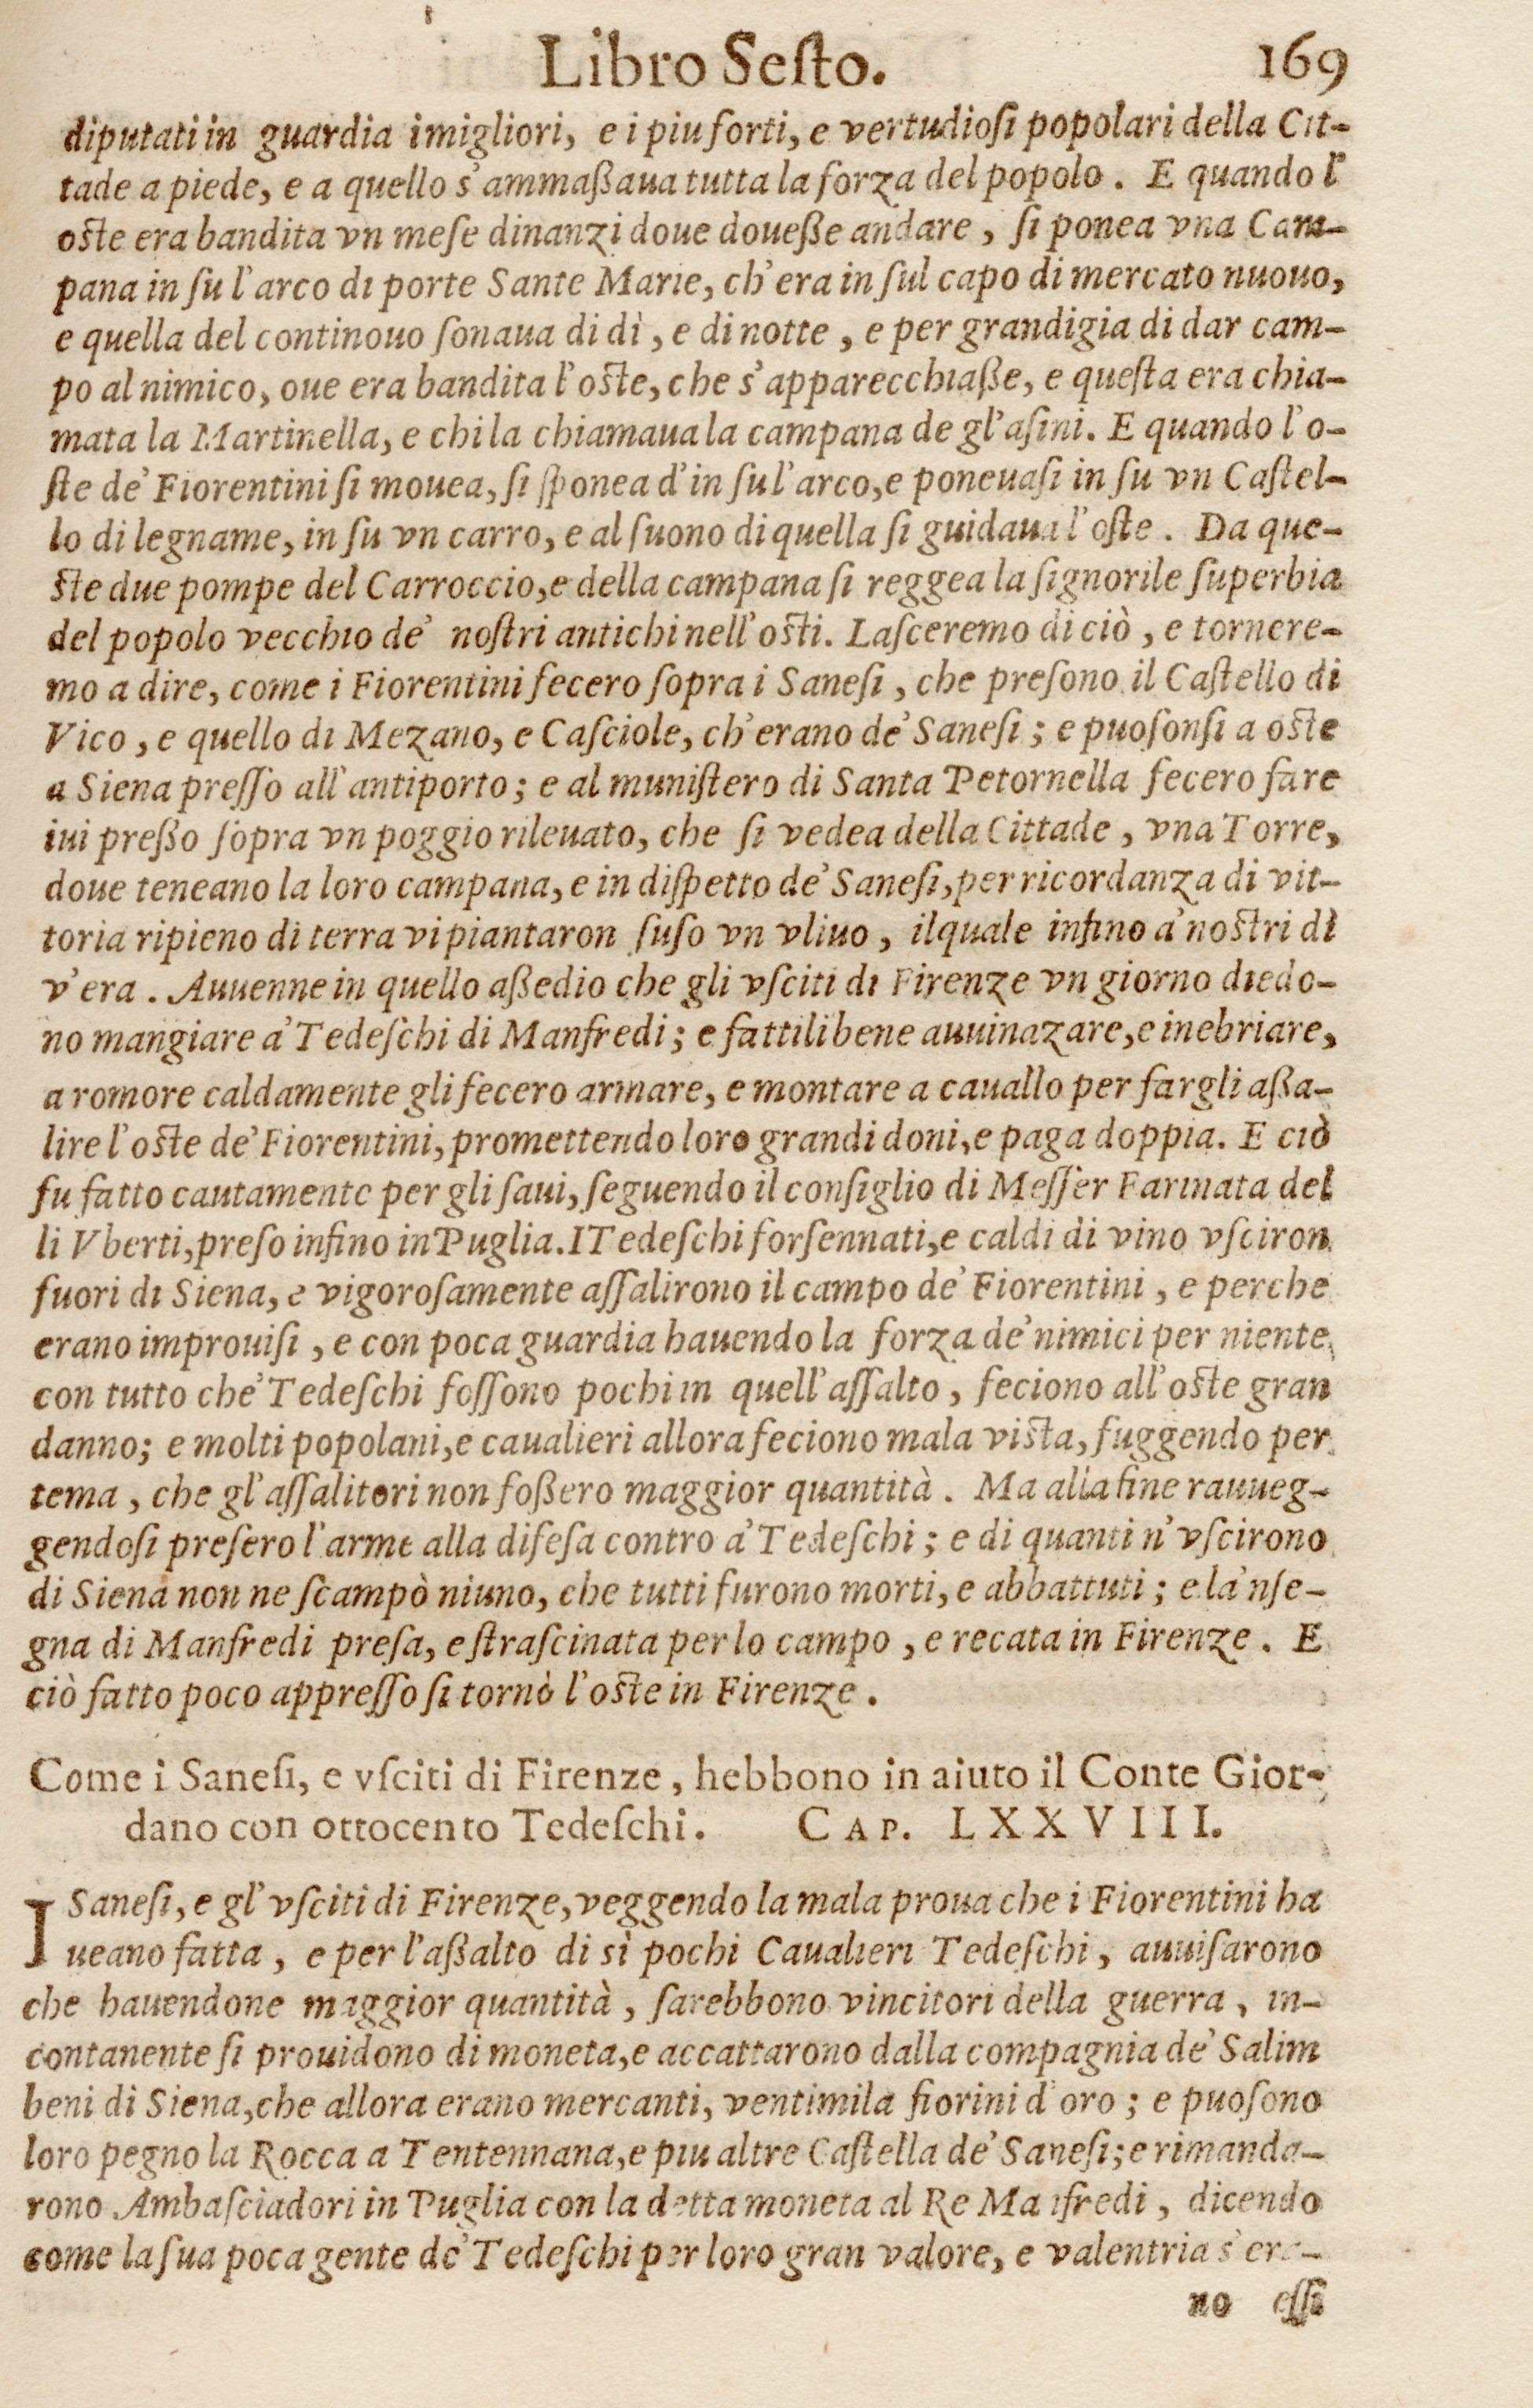 Libro Seſto. 169
diputati in guardia i migliori, e i piu forti, e vertudioſi popolari della Cit-
tade a piede, e a quello s'ammaßaua tutta la forza del popolo. E quando l'
oſte era bandita vn meſe dinanzi doue doueße andare, ſi ponea vna Cam-
pana in ſu l'arco di porte Sante Marie, ch'era in ſul capo di mercato nuouo,
e quella del continouo ſonaua di dì, e di notte, e per grandigia di dar cam-
po al nimico, oue era bandita l'oſte, che s'apparecchiaße, e queſta era chia-
mata la Martinella, e chi la chiamaua la campana de gl'aſini. E quando l'o-
ſte de' Fiorentini ſi mouea, ſi ſponea d'in ſu l'arco, e poneuaſi in ſu vn Caſtel-
lo di legname, in ſu vn carro, e al ſuono di quella ſi guidaua l'oſte. Da que-
ſte due pompe del Carroccio, e della campana ſi reggea la ſignorile ſuperbia
del popolo vecchio de' noſtri antichi nell'oſti. Laſceremo di ciò, e tornere-
mo a dire, come i Fiorentini fecero ſopra i Saneſi, che preſono il Caſtello di
Vico, e quello di Mezano, e Caſciole, ch'erano de' Saneſi; e puoſonſi a oſte
a Siena preſſo all'antiporto; e al muniſtero di Santa Petornella fecero fare
iui preßo ſopra vn poggio rileuato, che ſi vedea della Cittade, vna Torre,
doue teneano la loro campana, e in diſpetto de' Saneſi, per ricordanza di vit-
toria ripieno di terra vi piantaron ſuſo vn vliuo, ilquale infino a' noſtri dì
v'era. Auuenne in quello aßedio che gli vſciti di Firenze vn giorno diedo-
no mangiare a' Tedeſchi di Manfredi; e fattili bene auuinazare, e inebriare,
a romore caldamente gli fecero armare, e montare a cauallo per fargli aßa-
lire l'oſte de' Fiorentini, promettendo loro grandi doni, e paga doppia. E ciò
fu fatto cautamente per gli ſaui, ſeguendo il conſiglio di Meſſer Farinata del
li Vberti, preſo infino in Puglia. I Tedeſchi forſennati, e caldi di vino vſciron
fuori di Siena, e vigoroſamente aſſalirono il campo de' Fiorentini, e perche
erano improuiſi, e con poca guardia hauendo la forza de' nimici per niente
con tutto che' Tedeſchi foſſono pochi in quell'aſſalto, feciono all'oſte gran
danno; e molti popolani, e caualieri allora feciono mala viſta, fuggendo per
tema, che gl'aſſalitori non foßero maggior quantità. Ma alla fine rauueg-
gendoſi preſero l'arme alla difeſa contro a' Tedeſchi; e di quanti n'vſcirono
di Siena non ne ſcampò niuno, che tutti furono morti, e abbattuti; e la'nſe-
gna di Manfredi preſa, e ſtraſcinata per lo campo, e recata in Firenze. E
ciò fatto poco appreſſo ſi tornò l'oſte in Firenze.
Come i Saneſi, e vſciti di Firenze, hebbono in aiuto il Conte Gior-
dano con ottocento Tedeſchi. CAP. LXXVIII.
I Saneſi, e gl'vſciti di Firenze, veggendo la mala proua che i Fiorentini ha
ueano fatta, e per l'aßalto di sì pochi Caualieri Tedeſchi, auuiſarono
che hauendone maggior quantità, ſarebbono vincitori della guerra, in-
contanente ſi prouidono di moneta, e accattarono dalla compagnia de' Salim
beni di Siena, che allora erano mercanti, ventimila fiorini d'oro; e puoſono
loro pegno la Rocca a Tentennana, e piu altre Caſtella de' Saneſi; e rimanda-
rono Ambaſciadori in Puglia con la detta moneta al Re Manfredi, dicendo
come la ſua poca gente de' Tedeſchi per loro gran valore, e valentria s'era-
no eſſi